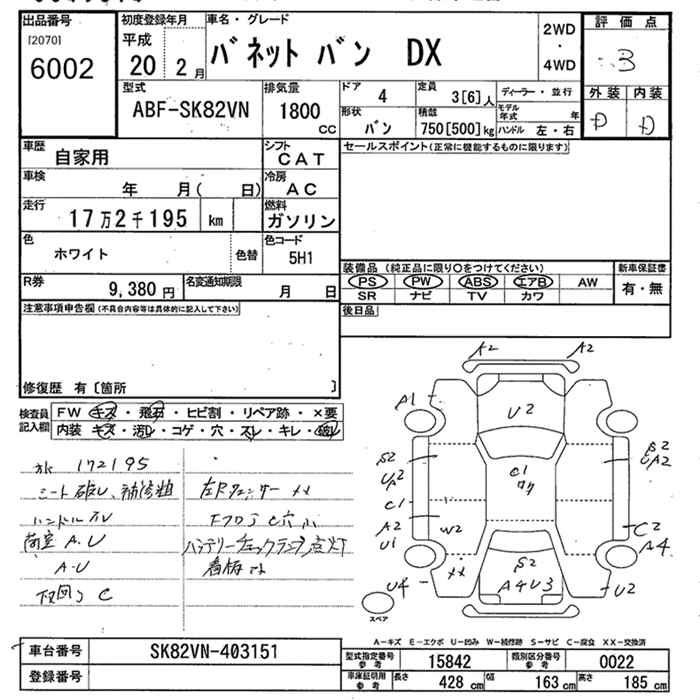 出品番号
[2070]
6002
初度登録年月
平成
20 2 月
車名・グレード
バネット バン DX
2WD
・
4WD
評価点
3
外装 内装
D D
型式
ABF-SK82VN
排気量
1800
cc
ドア 4
形状 バン
定員 3[6]人
積載 750[500]kg
ディーラー・並行
モデル年式 年
ハンドル 左・右
車歴 自家用
シフト CAT
セールスポイント(正常に機能するものに限ります)
車検 年 月( 日)
冷房 AC
走行 17万2千195 km
燃料 ガソリン
色 ホワイト 色替
色コード 5H1
R券 9,380 円
名変通知期限 月 日
装備品 (純正品に限り○をつけてください)
新車保証書
PS PW ABS エアB AW
有・無
SR ナビ TV カワ
後日品
注意事項申告欄(不具合内容等は具体的に記入して下さい)
修復歴 有〔箇所 〕
検査員記入欄
FW キズ・飛石・ヒビ割・リペア跡・×要
内装 キズ・汚レ・コゲ・穴・スレ・キレ・破レ
172195
シート破レ、補修粗
ハンドルスレ
荷室 A.U
A.U
下回り C
左Fフェンダー ××
バッテリーチェックランプ点灯
看板コン
A2 A2
A1
U2
S2
UA2
C1
A2
U1
C1
W2
××
U4
S2
A4U3
U2
B2
UA2
C2
A4
スペア
A―キズ E―エクボ U―凹み W―補修跡 S―サビ C―腐食 XX―交換済
車台番号 SK82VN-403151
登録番号
型式指定番号 参考 15842
類別区分番号 参考 0022
車庫証明用 参考
長さ 428 cm
幅 163 cm
高さ 185 cm